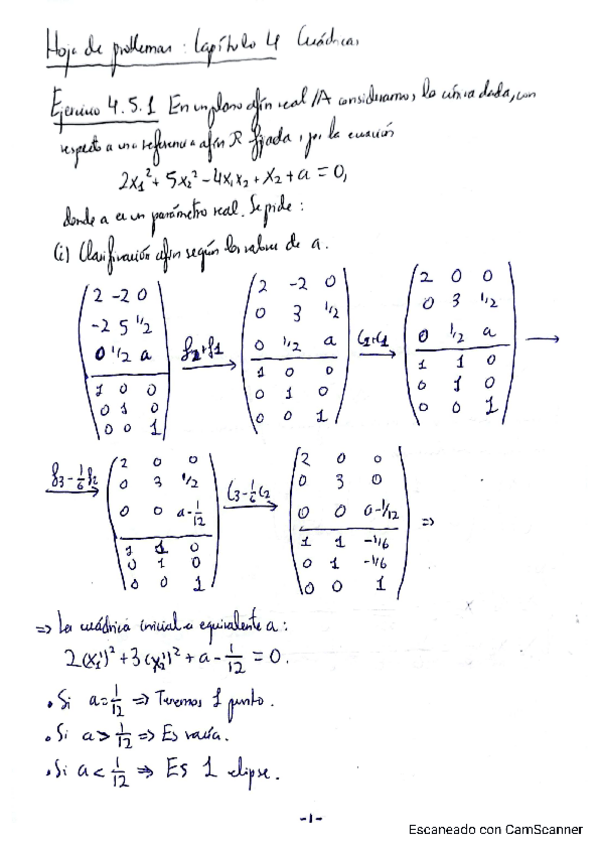 Hoja de problemas: Capítulo 4 Cuádricas
Ejercicio 4.5.1 En un plano afín real /A consideramos la cónica dada, con
respecto a una referencia afín R fijada, por la ecuación
2x₁² + 5x₂² - 4x₁x₂ + x₂ + a = 0,
donde a es un parámetro real. Se pide:
(i) Clasificación afín según los valores de a.
2 -2 0 2 -2 0 2 0 0
-2 5 1/2 0 3 1/2 0 3 1/2
0 1/2 a f₂+f₁ 0 1/2 a C₂+C₁ 0 1/2 a →
1 0 0 1 0 0 1 1 0
0 1 0 0 1 0 0 1 0
0 0 1 0 0 1 0 0 1
f₃-1/6f₂ 2 0 0 C₃-1/6C₂ 2 0 0
0 3 1/2 0 3 0
0 0 a-1/12 0 0 a-1/12 ⇒
1 1 0 1 1 -1/6
0 1 0 0 1 -1/6
0 0 1 0 0 1
⇒ La cuádrica inicial es equivalente a:
2(x₁')² + 3(x₂')² + a - 1/12 = 0.
• Si a = 1/12 ⇒ Tenemos 1 punto.
• Si a > 1/12 ⇒ Es vacía.
• Si a < 1/12 ⇒ Es 1 elipse.
-1-
Escaneado con CamScanner